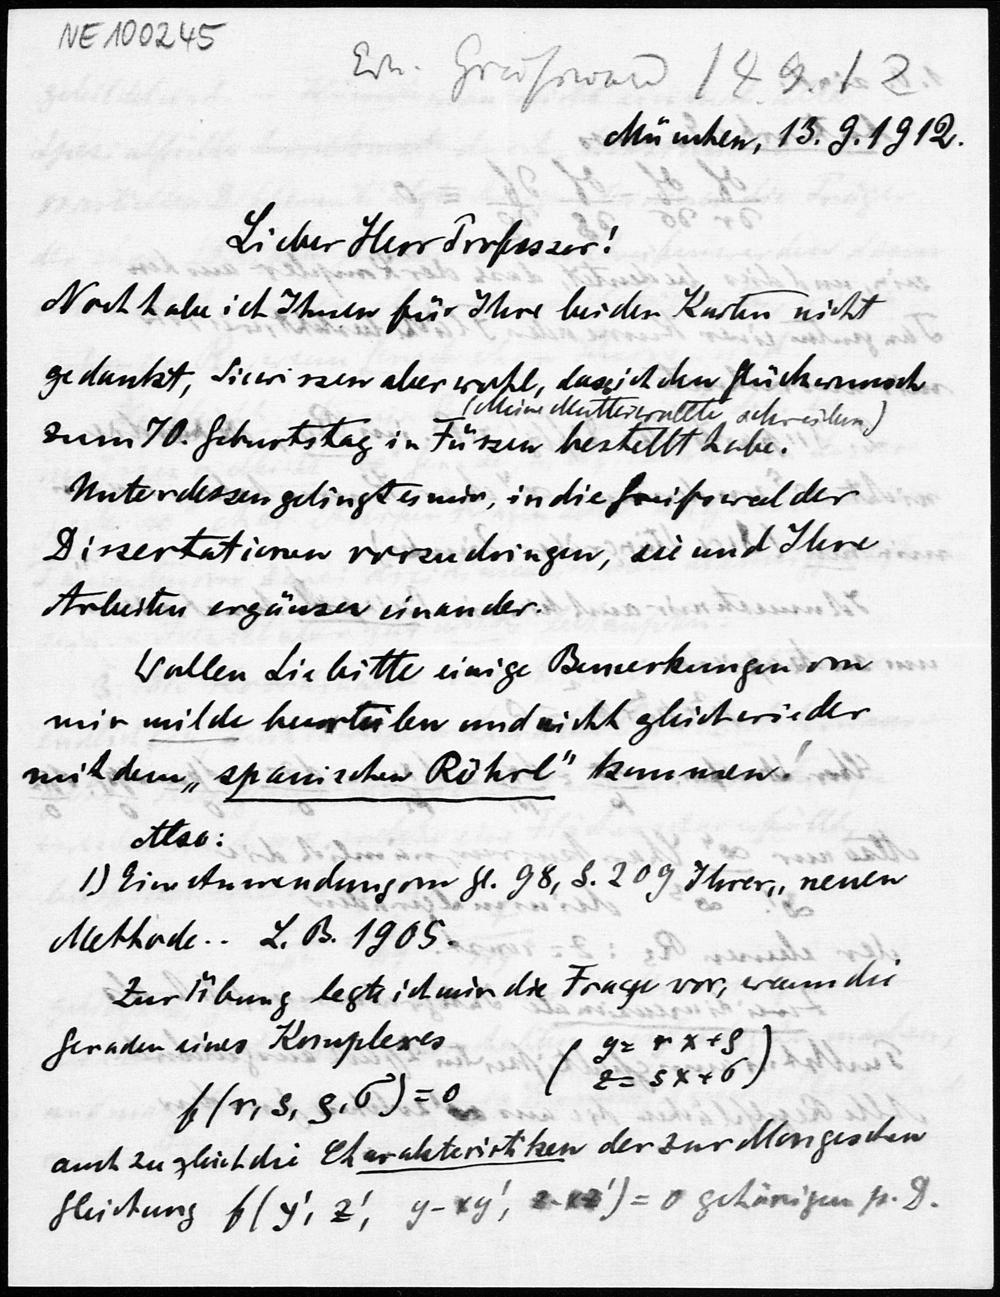 NE100245
Em. Greifswald 14.9.12
München, 13.9.1912.
Lieber Herr Professor!
Noch habe ich Ihnen für Ihre beiden Karten nicht
gedankt, Sie wissen aber wohl, dass ich den Glückwunsch
(Meine Mutter wollte schreiben)
zum 70. Geburtstag in Füssen bestellt habe.
Unterdessen gelingt es mir, in die Greifswalder
Dissertationen vorzudringen, sie und Ihre
Arbeiten ergänzen einander.
Wollen Sie bitte einige Bemerkungen von
mir milde beurteilen und nicht gleich wieder
mit dem „spanischen Röhrl" kommen!
Also:
1) Eine Anwendung von Gl. 98, S. 209 Ihrer „neuen
Methode.. L.B. 1905.
Zur Übung legte ich mir die Frage vor, wann die
Geraden eines Komplexes
(y = rx+ρ
z = sx+σ)
f(r, s, ρ, σ) = 0
auch zugleich die Charakteristiken der zur Mongeschen
Gleichung f(y', z', y-xy', z-xz') = 0 gehörigen p. D.